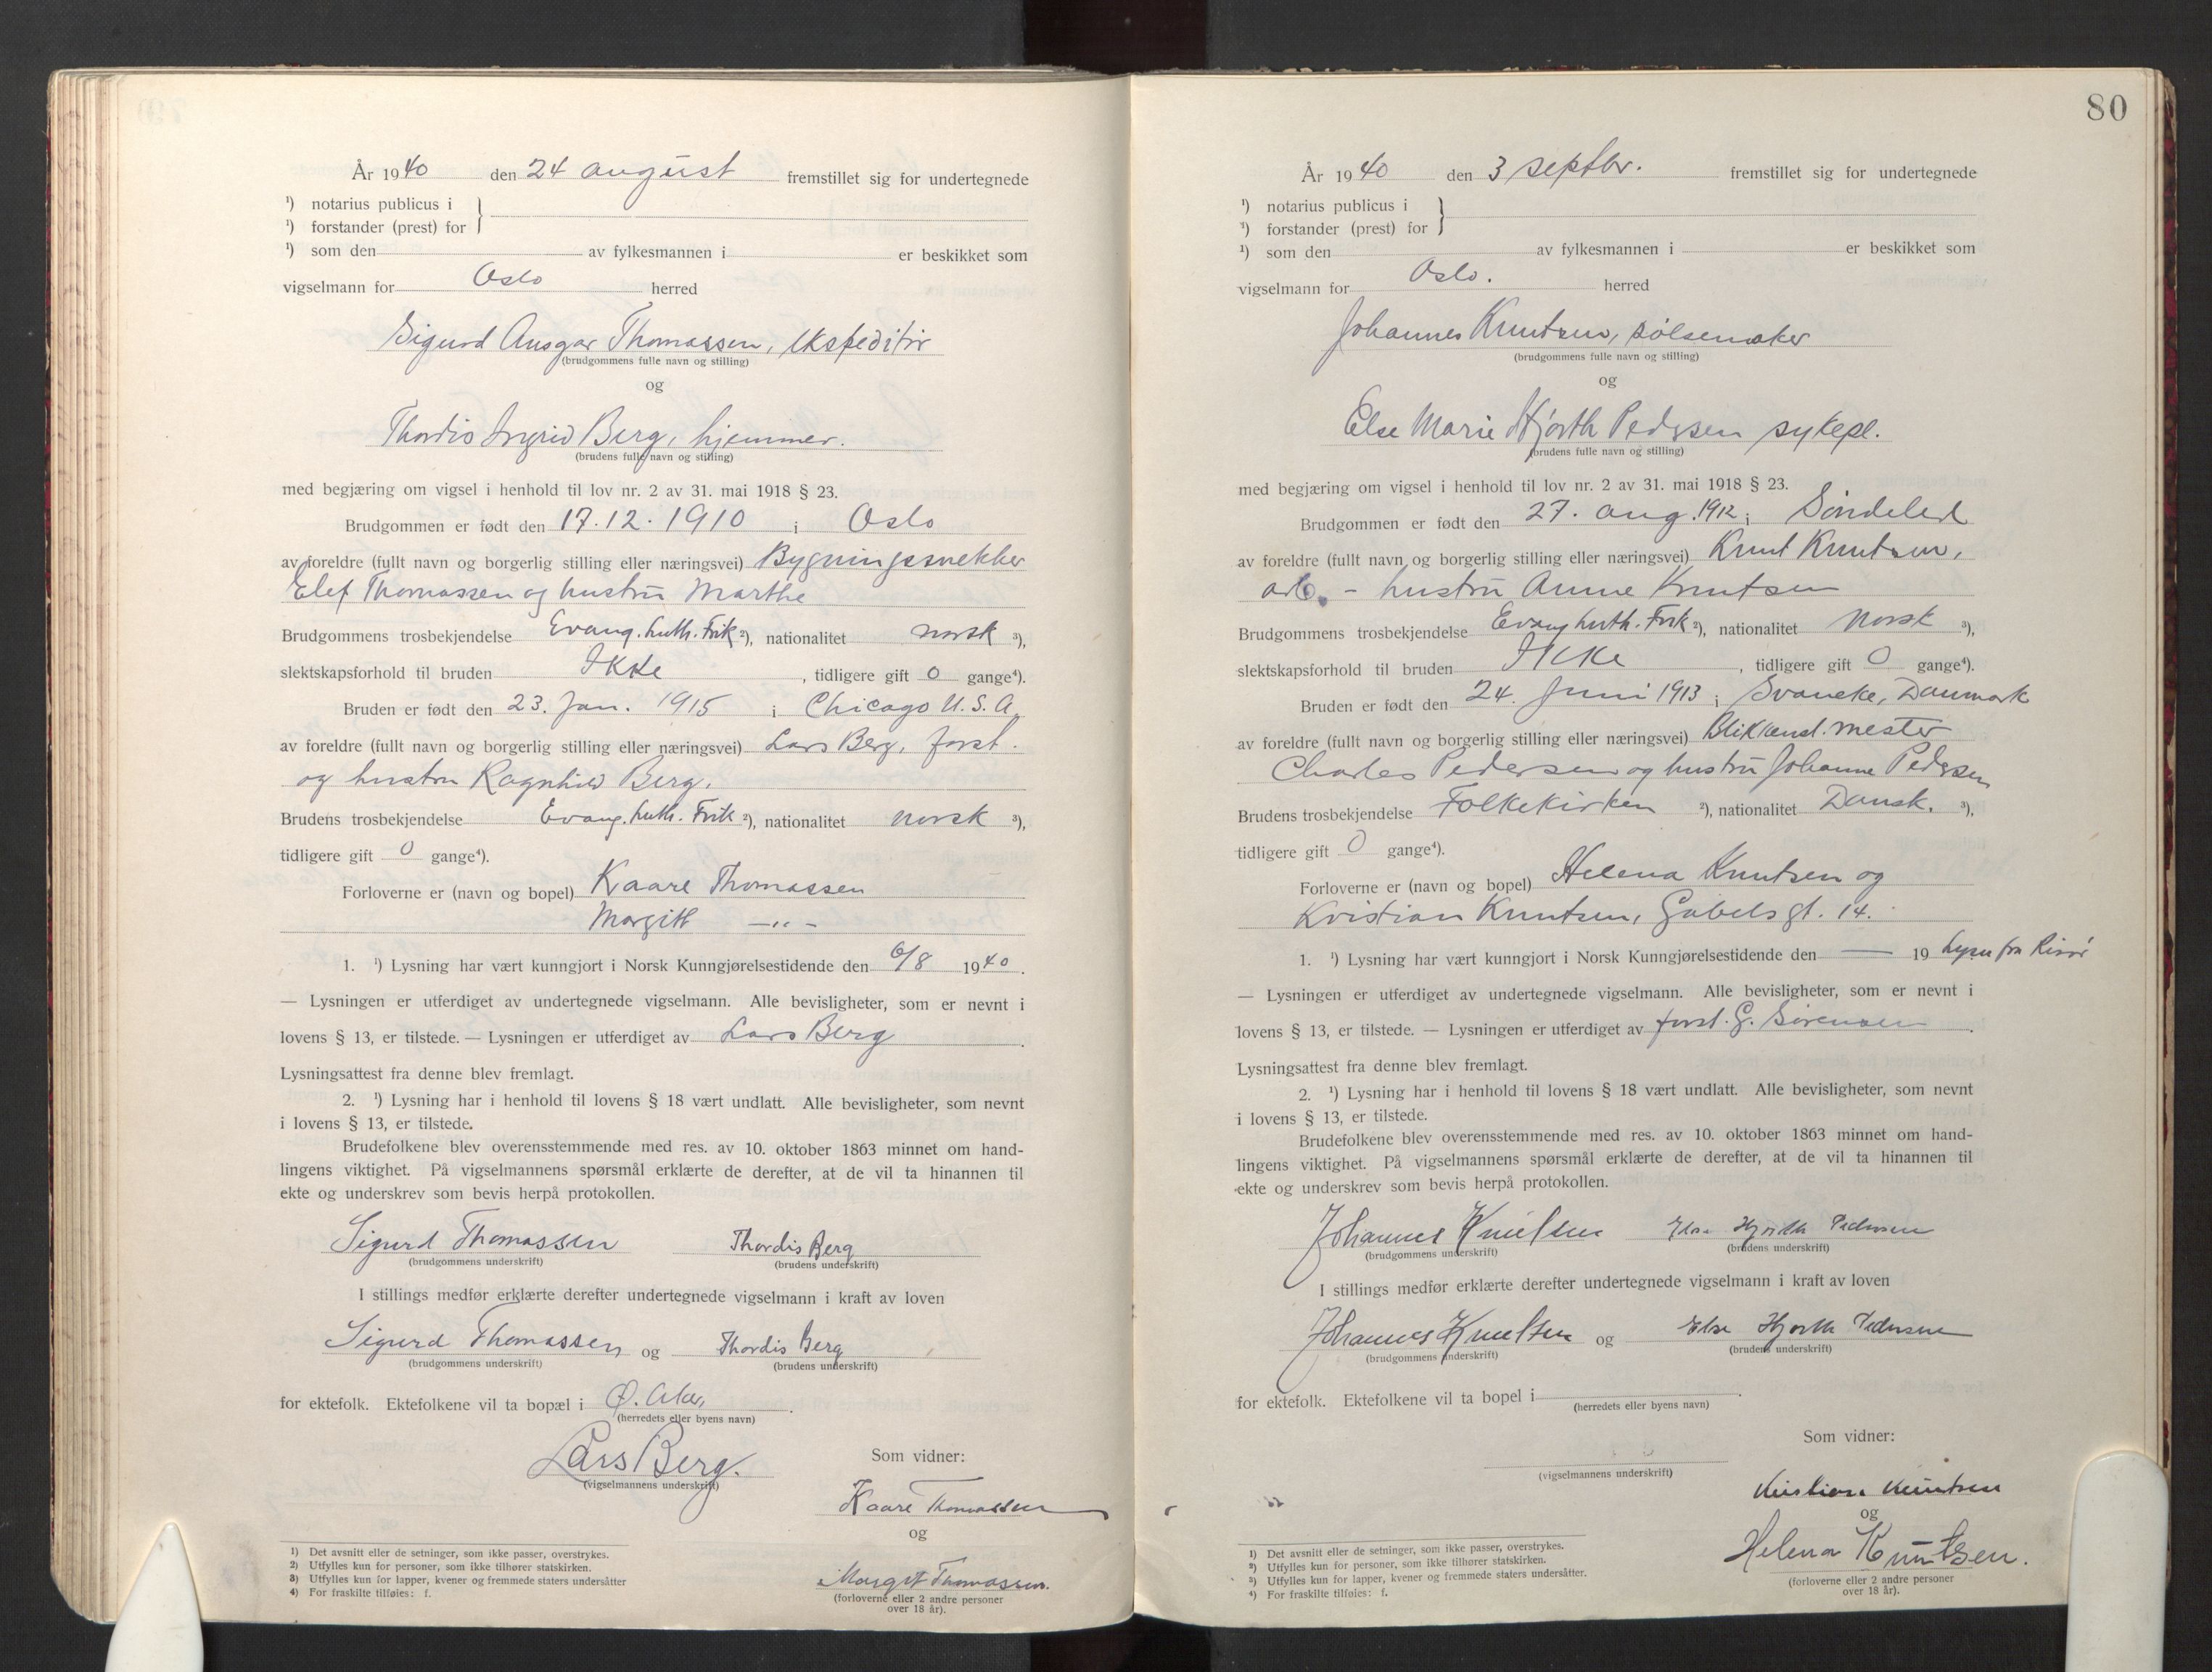 År 1940 den 24 august fremstillet sig for undertegnede
¹) notarius publicus i
¹) forstander (prest) for
¹) som den av fylkesmannen i er beskikket som
vigselmann for Oslo herred
Sigurd Ansgar Thomassen, ekspeditør
(brudgommens fulle navn og stilling)
og
Thordis Ingrid Berg, hjemmev.
(brudens fulle navn og stilling)
med begjæring om vigsel i henhold til lov nr. 2 av 31. mai 1918 § 23.
Brudgommen er født den 17.12.1910 i Oslo
av foreldre (fullt navn og borgerlig stilling eller næringsvei) Bygningssnekker
Elef Thomassen og hustru Marthe
Brudgommens trosbekjendelse Evang. luth. Frik ²), nationalitet norsk ³),
slektskapsforhold til bruden Ikke, tidligere gift 0 gange⁴).
Bruden er født den 23. Jan. 1915 i Chicago U.S.A.
av foreldre (fullt navn og borgerlig stilling eller næringsvei) Lars Berg, forst.
og hustru Ragnhild Berg.
Brudens trosbekjendelse Evang. luth. Frik ²), nationalitet norsk ³),
tidligere gift 0 gange⁴).
Forloverne er (navn og bopel) Kaare Thomassen
Margitt —„—
1. ¹) Lysning har vært kunngjort i Norsk Kunngjørelsestidende den 6/8 1940.
— Lysningen er utferdiget av undertegnede vigselmann. Alle bevisligheter, som er nevnt i
lovens § 13, er tilstede. — Lysningen er utferdiget av Lars Berg.
Lysningsattest fra denne blev fremlagt.
2. ¹) Lysning har i henhold til lovens § 18 vært undlatt. Alle bevisligheter, som nevnt
i lovens § 13, er tilstede.
Brudefolkene blev overensstemmende med res. av 10. oktober 1863 minnet om hand-
lingens viktighet. På vigselmannens spørsmål erklærte de derefter, at de vil ta hinannen til
ekte og underskrev som bevis herpå protokollen.
Sigurd Thomassen Thordis Berg
(brudgommens underskrift) (brudens underskrift)
I stillings medfør erklærte derefter undertegnede vigselmann i kraft av loven
Sigurd Thomassen og Thordis Berg
(brudgommens underskrift) (brudens underskrift)
for ektefolk. Ektefolkene vil ta bopæl i Ø. Aker.
(herredets eller byens navn)
Lars Berg.
(vigselmannens underskrift)
Som vidner:
Kaare Thomassen
og
Margit Thomassen.
(forloverne eller 2 andre personer
over 18 år).
1) Det avsnitt eller de setninger, som ikke passer, overstrykes.
2) Utfylles kun for personer, som ikke tilhører statskirken.
3) Utfylles kun for lapper, kvener og fremmede staters undersåtter
4) For fraskilte tilføies: f.
80
År 1940 den 3 septbr. fremstillet sig for undertegnede
¹) notarius publicus i
¹) forstander (prest) for
¹) som den av fylkesmannen i er beskikket som
vigselmann for Oslo. herred
Johannes Knutsen, pølsemaker
(brudgommens fulle navn og stilling)
og
Else Marie Hjorth Pedersen sykepl.
(brudens fulle navn og stilling)
med begjæring om vigsel i henhold til lov nr. 2 av 31. mai 1918 § 23.
Brudgommen er født den 27. aug. 1912 i Søndeled
av foreldre (fullt navn og borgerlig stilling eller næringsvei) Knut Knutsen,
arb. - hustru Anne Knutsen
Brudgommens trosbekjendelse Evang luth. Frik ²), nationalitet Norsk ³),
slektskapsforhold til bruden Ikke, tidligere gift 0 gange⁴).
Bruden er født den 24. Juni 1913 i Svaneke, Danmark
av foreldre (fullt navn og borgerlig stilling eller næringsvei) Blikkensl. mester
Charles Pedersen og hustru Johanne Pedersen
Brudens trosbekjendelse Folkekirken ²), nationalitet Dansk. ³),
tidligere gift 0 gange⁴).
Forloverne er (navn og bopel) Helena Knutsen og
Kristian Knutsen, Gabels gt. 14.
1. ¹) Lysning har vært kunngjort i Norsk Kunngjørelsestidende den — 19 Lysn fra Risør
— Lysningen er utferdiget av undertegnede vigselmann. Alle bevisligheter, som er nevnt i
lovens § 13, er tilstede. — Lysningen er utferdiget av forst. G. Sørensen.
Lysningsattest fra denne blev fremlagt.
2. ¹) Lysning har i henhold til lovens § 18 vært undlatt. Alle bevisligheter, som nevnt
i lovens § 13, er tilstede.
Brudefolkene blev overensstemmende med res. av 10. oktober 1863 minnet om hand-
lingens viktighet. På vigselmannens spørsmål erklærte de derefter, at de vil ta hinannen til
ekte og underskrev som bevis herpå protokollen.
Johannes Knutsen Else Hjorth Pedersen
(brudgommens underskrift) (brudens underskrift)
I stillings medfør erklærte derefter undertegnede vigselmann i kraft av loven
Johannes Knutsen og Else Hjorth Pedersen
(brudgommens underskrift) (brudens underskrift)
for ektefolk. Ektefolkene vil ta bopel i
(herredets eller byens navn)
(vigselmannens underskrift)
Som vidner:
Kristian Knutsen
og
Helena Knutsen.
(forloverne eller 2 andre personer
over 18 år).
1) Det avsnitt eller de setninger, som ikke passer, overstrykes.
2) Utfylles kun for personer, som ikke tilhører statskirken.
3) Utfylles kun for lapper, kvener og fremmede staters undersåtter.
4) For fraskilte tilføies: f.